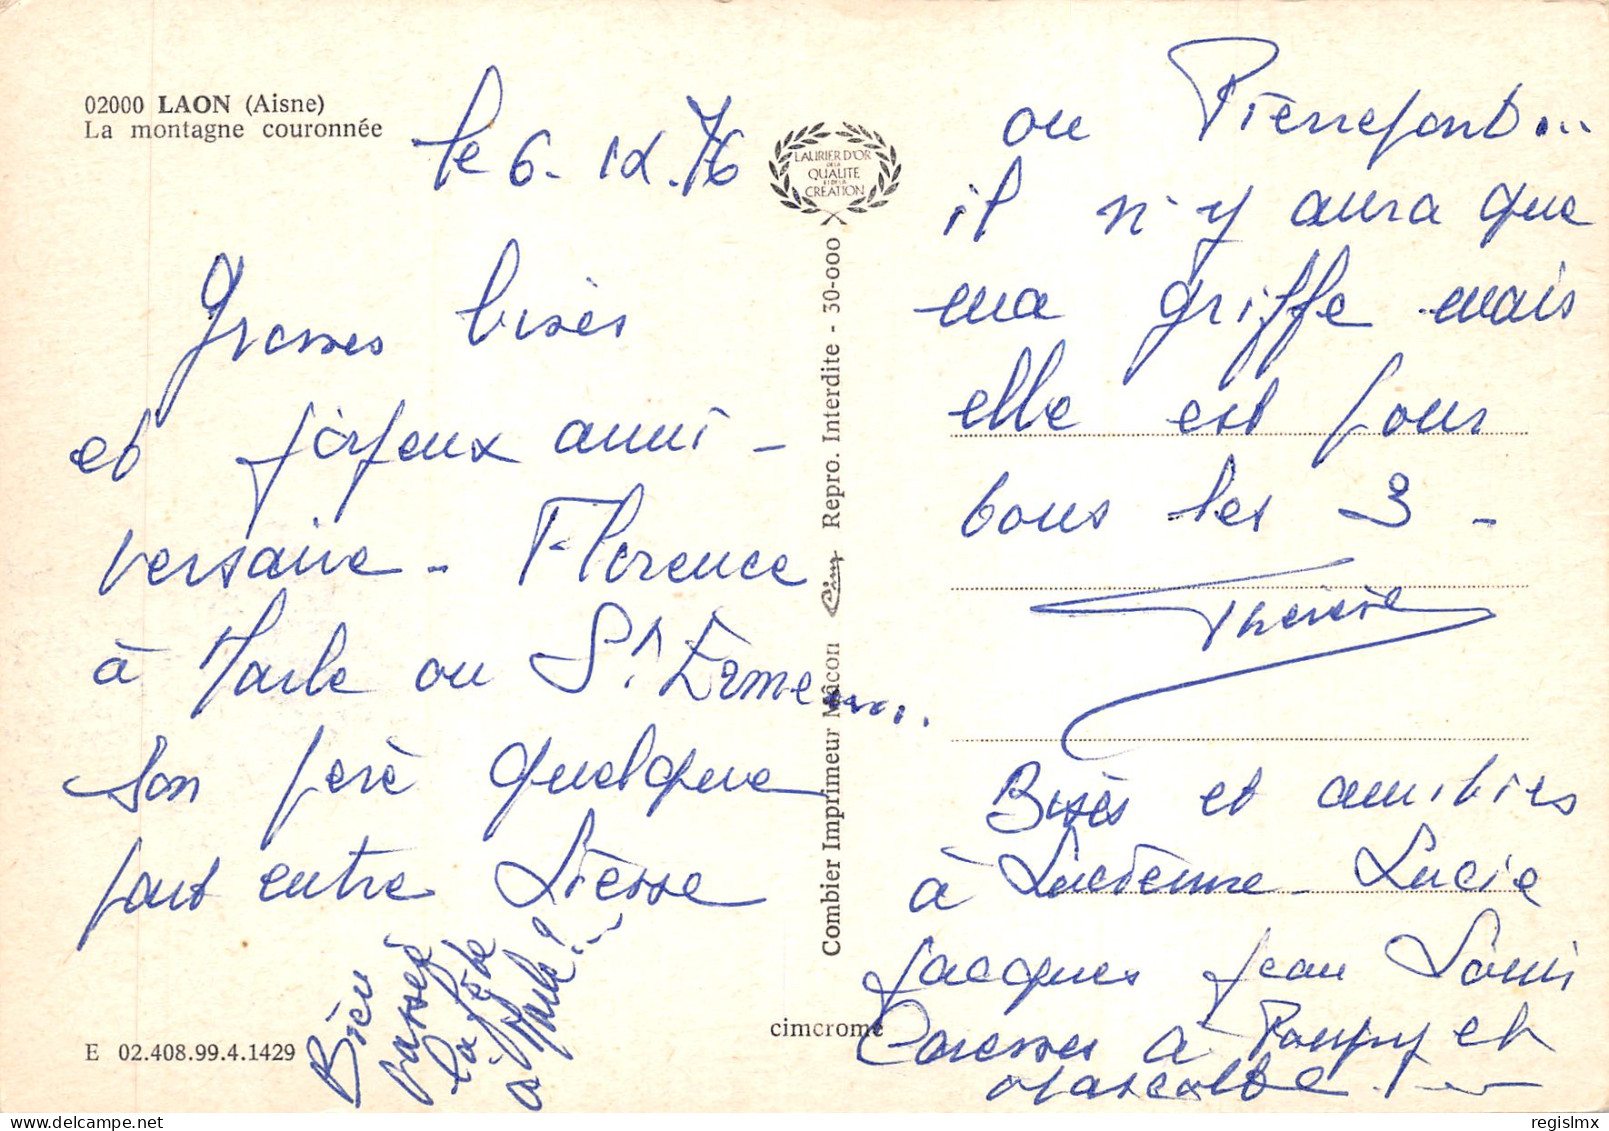 02000 LAON (Aisne)
La montagne couronnée
le 6. IX. 76
Grosses bises
et joyeux anni-
versaire - Florence
à Marle ou St. Erme...
Son père quelque
part entre Liesse
Bien
passée
la fête
à Marle?...
E 02.408.99.4.1429
LAURIER D'OR
DE LA
QUALITE
ET DE LA
CREATION
Combier Imprimeur Mâcon Cim Repro. Interdite - 30-000
cimcrome
ou Pierrefont...
il n'y aura que
ma griffe mais
elle est pour
tous les 3 -
Thérèse
Bises et amitiés
à Lucienne - Lucie
Jacques Jean Louis
Caresses à Poupy et
regislmx